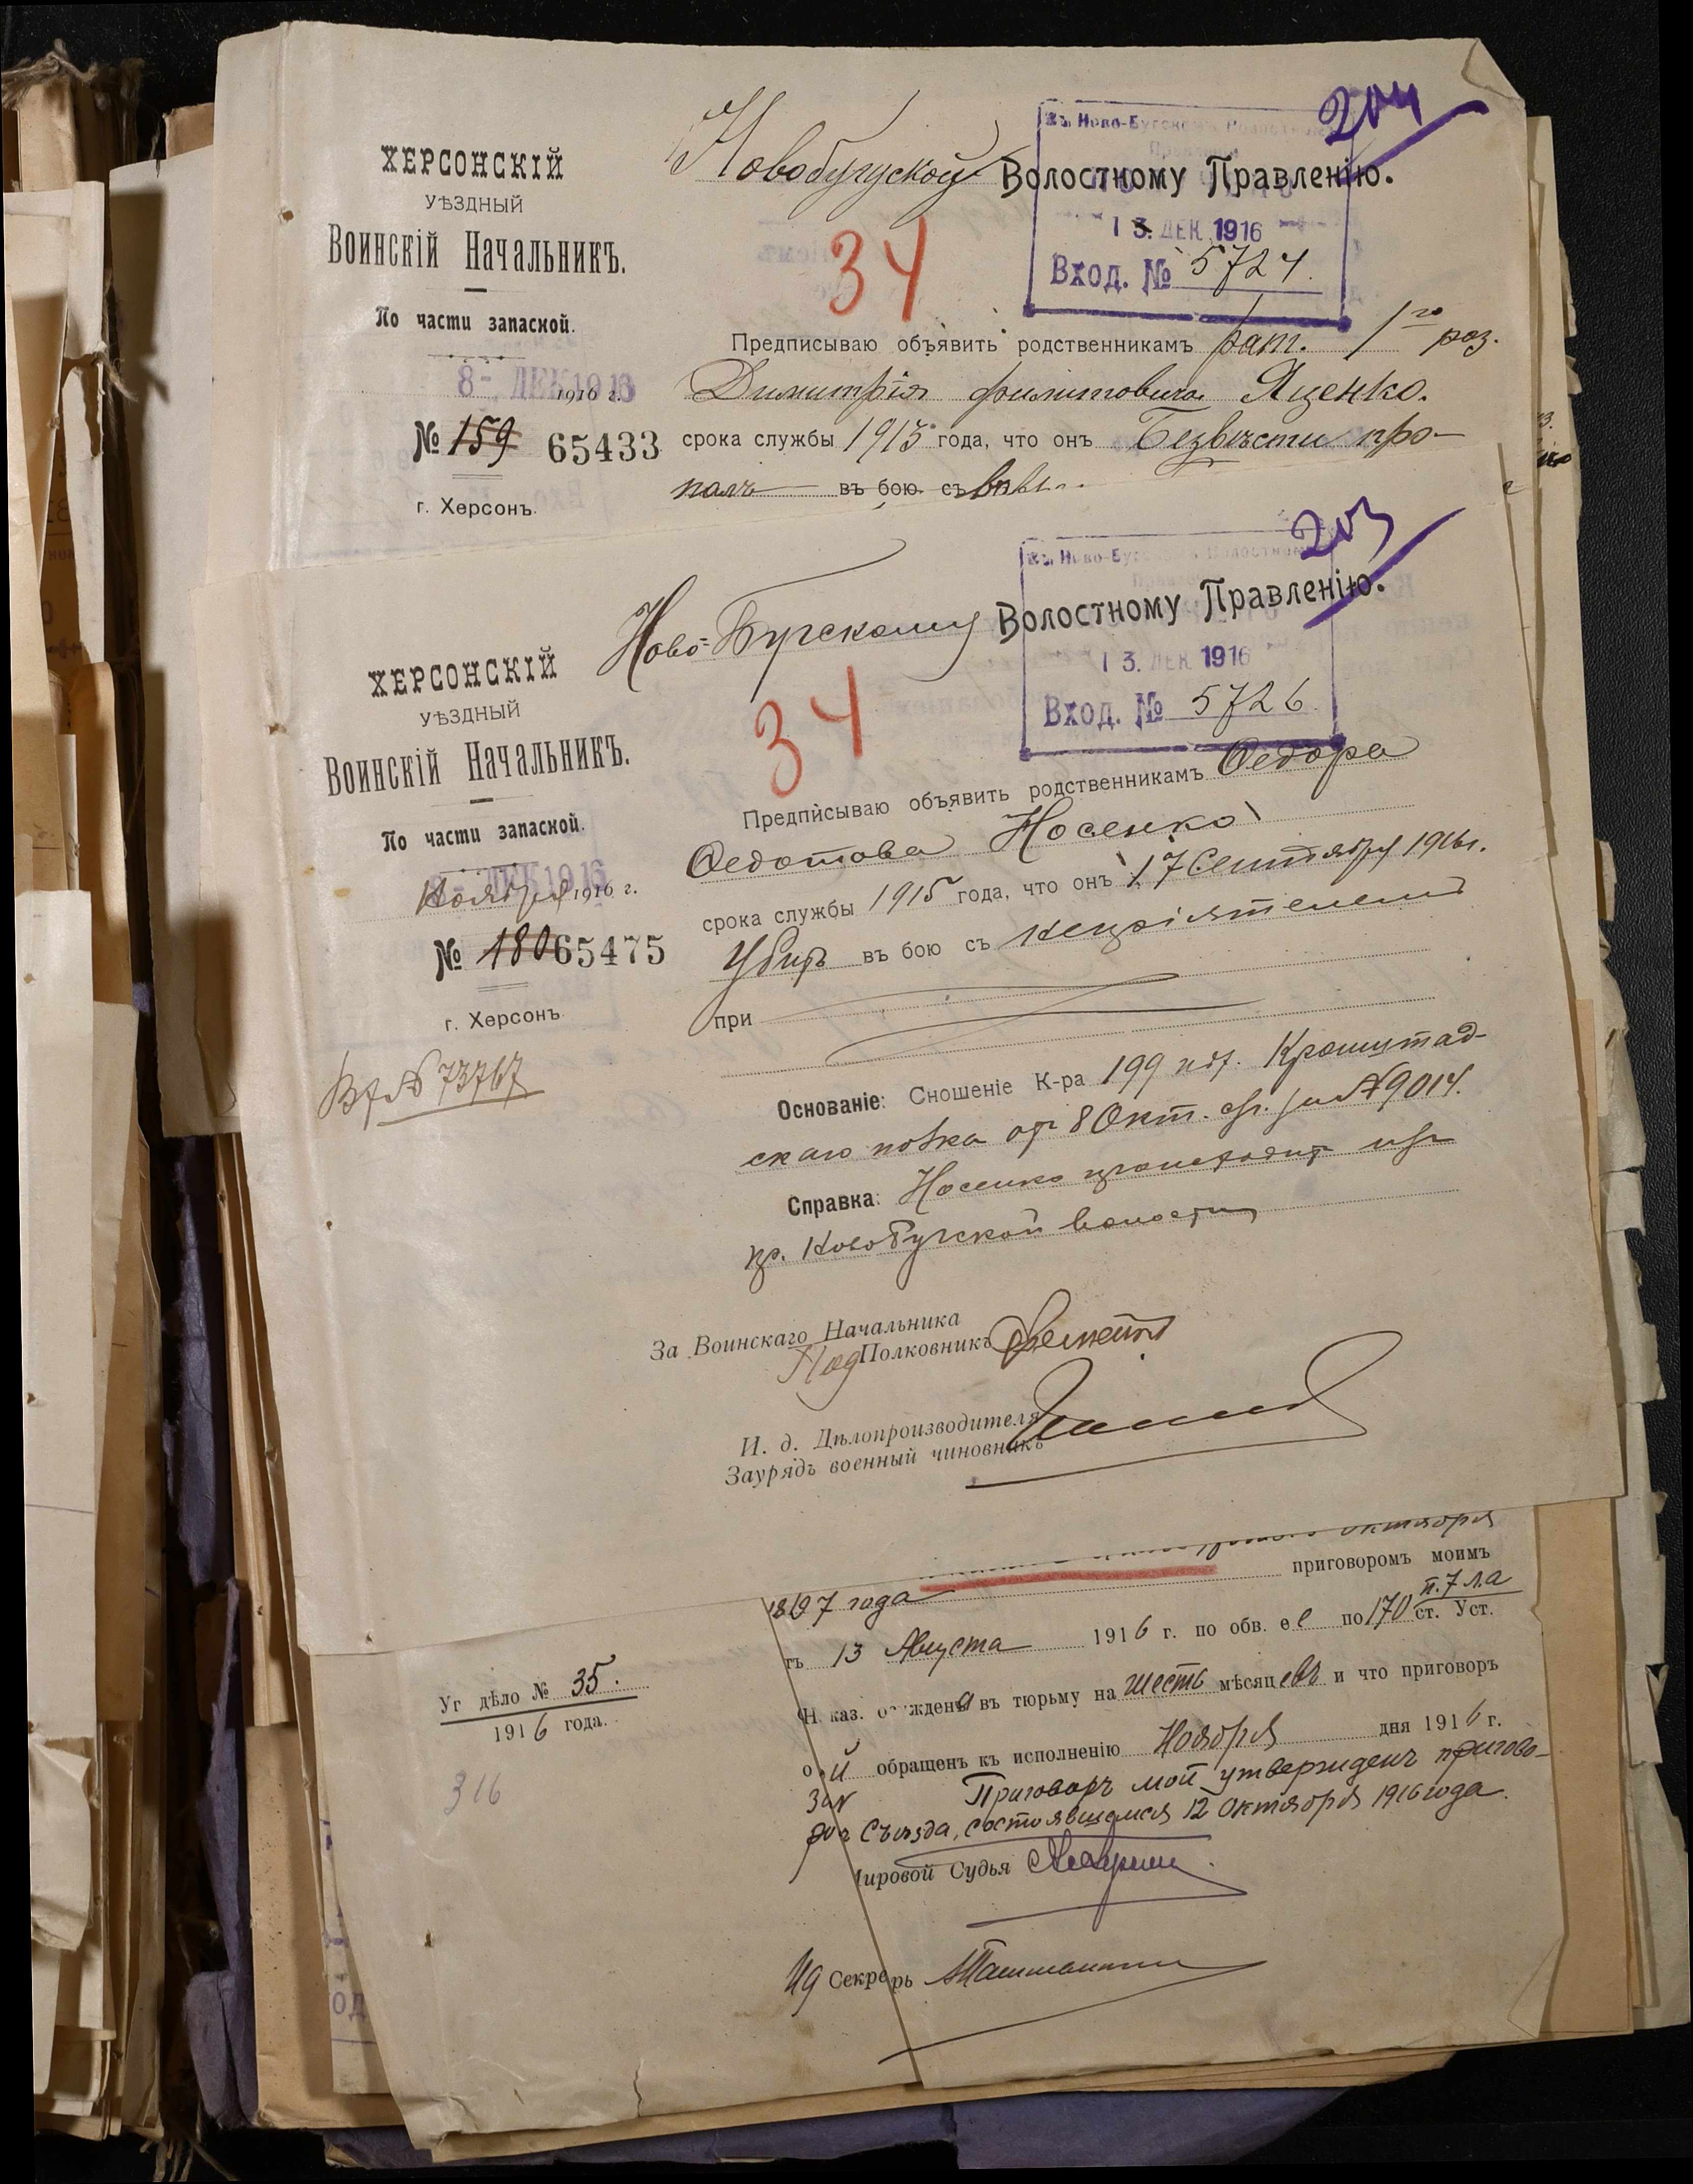 204
ХЕРСОНСКІЙ
УѢЗДНЫЙ
ВОИНСКІЙ НАЧАЛЬНИКЪ.
По части запасной.
8 - ДЕК 1916
1916 г.
№ 159 65433
г. Херсонъ.
Новобугуской Волостному Правленію.
13. ДЕК. 1916
Вход. № 5724.
34
Предписываю объявить родственникамъ рат. 1го раз.
Димитрія Филитовича Яценко.
срока службы 1915 года, что онъ Безвѣсти про-
палъ въ бою съ
203
ХЕРСОНСКІЙ
УѢЗДНЫЙ
ВОИНСКІЙ НАЧАЛЬНИКЪ.
По части запасной.
8 - ДЕК 1916
Ноября 1916 г.
№ 180 65475
г. Херсонъ
Вх № 73767
Ново-Бугскому Волостному Правленію.
13. ДЕК. 1916
Вход. № 5726
34
Предписываю объявить родственникамъ Ѳедора
Ѳедотова Носенко
срока службы 1915 года, что онъ 17 Сентября 1916 г.
Убитъ въ бою съ непріятелемъ
при
Основаніе: Сношеніе К-ра 199 пѣх. Кронштад-
скаго полка отъ 8 Окт. с/г. за № 9014.
Справка: Носенко происходитъ изъ
кр. Ново Бугской волости
За Воинскаго Начальника
Под Полковникъ
И. д. Дѣлопроизводителя
Заурядъ военный чиновникъ
октября
1897 года приговоромъ моимъ
тъ 13 Августа 1916 г. по обв. ее по 170 ст. п. 7 л.а Уст.
Н. каз. о ждена въ тюрьму на шесть мѣсяцевъ и что приговоръ
ой обращенъ къ исполненію Ноября дня 1916 г.
Приговоръ мой утвержденъ пригово-
ромъ Съѣзда, состоявшемся 12 Октября 1916 года.
Мировой Судья
Ид Секре рь
Уг дѣло № 35.
1916 года.
316